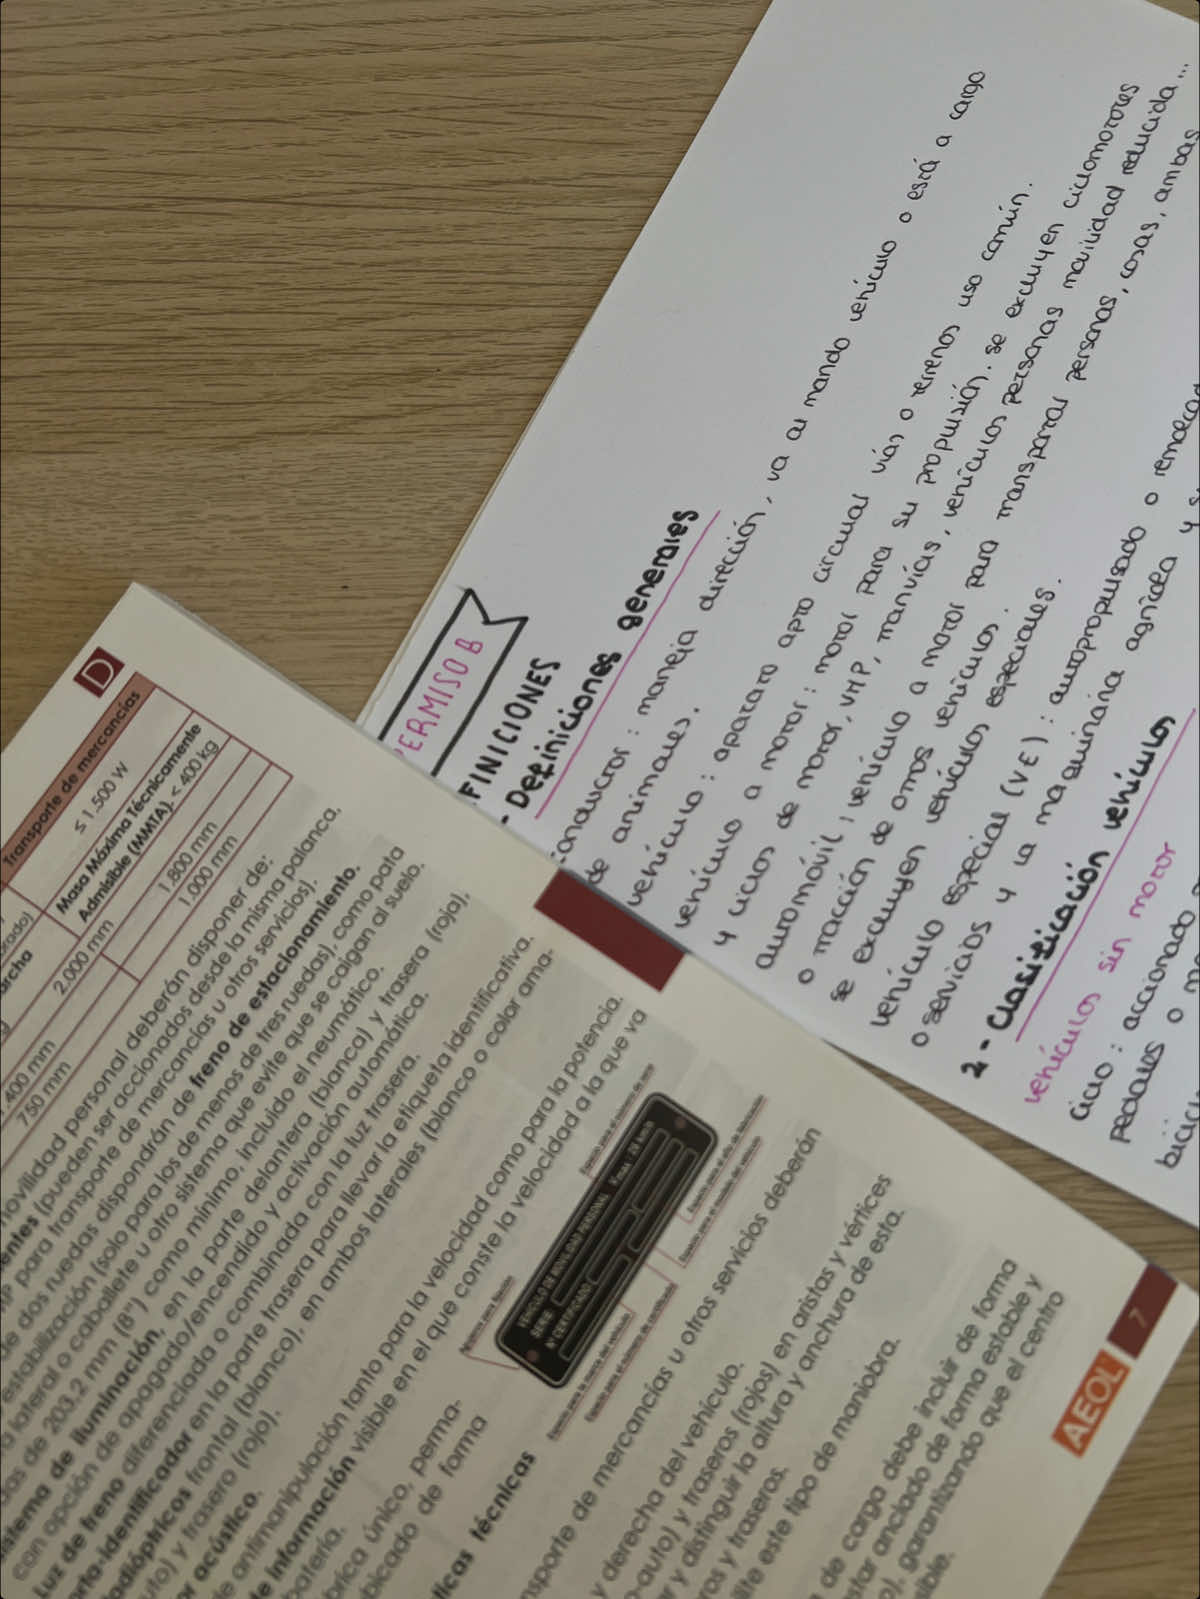 PERMISO B
FINICIONES
- Definiciones generales
conductor: maneja dirección, va al mando vehículo o está a cargo
de animales.
vehículo: aparato apto circular vías o terrenos uso común.
vehículo a motor: motor para su propulsión. se excluyen ciclomotores
y ciclos de motor, VMP, tranvías, vehículos personas movilidad reducida...
automóvil: vehículo a motor para transportar personas, cosas, ambas
o tracción de otros vehículos.
se excluyen vehículos especiales.
vehículo especial (VE): autopropulsado o remolcad
o servicios y la maquinaria agrícola y s
2- Clasificación vehículos
vehículos sin motor
ciclo: accionado
pedales o m
bicicl
D
Transporte de mercancías
≤ 1.500 W
Masa Máxima Técnicamente
Admisible (MMTA), < 400 kg
archa
2.000 mm
1.800 mm
1.000 mm
400 mm
750 mm
movilidad personal deberán disponer de:
entes (pueden ser accionados desde la misma palanca.
P para transporte de mercancías u otros servicios).
de dos ruedas dispondrán de freno de estacionamiento.
estabilización (solo para los de menos de tres ruedas), como pata
a lateral o caballete u otro sistema que evite que se caigan al suelo.
das de 203,2 mm (8") como mínimo, incluido el neumático.
istema de iluminación, en la parte delantera (blanca) y trasera (roja),
con opción de apagado/encendido y activación automática.
Luz de freno diferenciada o combinada con la luz trasera.
orta-identificador en la parte trasera para llevar la etiqueta identificativa.
adióptricos frontal (blanco), en ambos laterales (blanco o color ama-
uto) y trasero (rojo).
or acústico.
de antimanipulación tanto para la velocidad como para la potencia.
de información visible en el que conste la velocidad a la que va
batería.
brica único, perma-
bicado de forma
VEHÍCULO DE MOVILIDAD PERSONAL
SERIE
Nº CERTIFICADO
ticas técnicas
nsporte de mercancías u otros servicios deberán
y derecha del vehículo.
o-auto) y traseros (rojos) en aristas y vértices
r y distinguir la altura y anchura de esta.
ros y traseros.
lite este tipo de maniobra.
de carga debe incluir de forma
star anclado de forma estable y
o), garantizando que el centro
sible.
AEOL
7